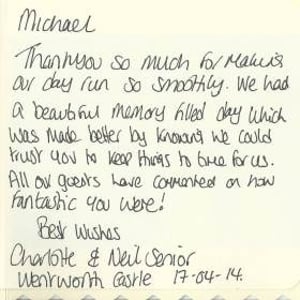 Michael
Thankyou so much for making
our day run so smoothly. We had
a beautiful memory filled day which
was made better by knowing we could
trust you to keep things to time for us.
All our guests have commented on how
fantastic you were!
Best Wishes
Charlotte & Neil Senior
Wentworth Castle 17-04-14.